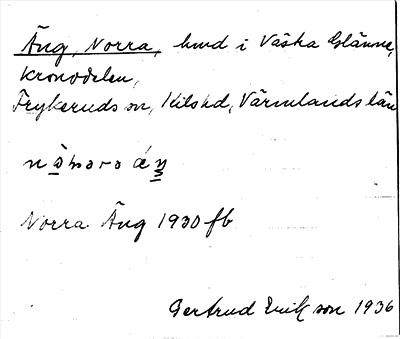 Äng, Norra, hmd i Västra Glänne,
Kronodelen,
Frykeruds sn, Kils hd, Värmlands län
Norra Äng 1930 fb
Gertrud Erikson 1936